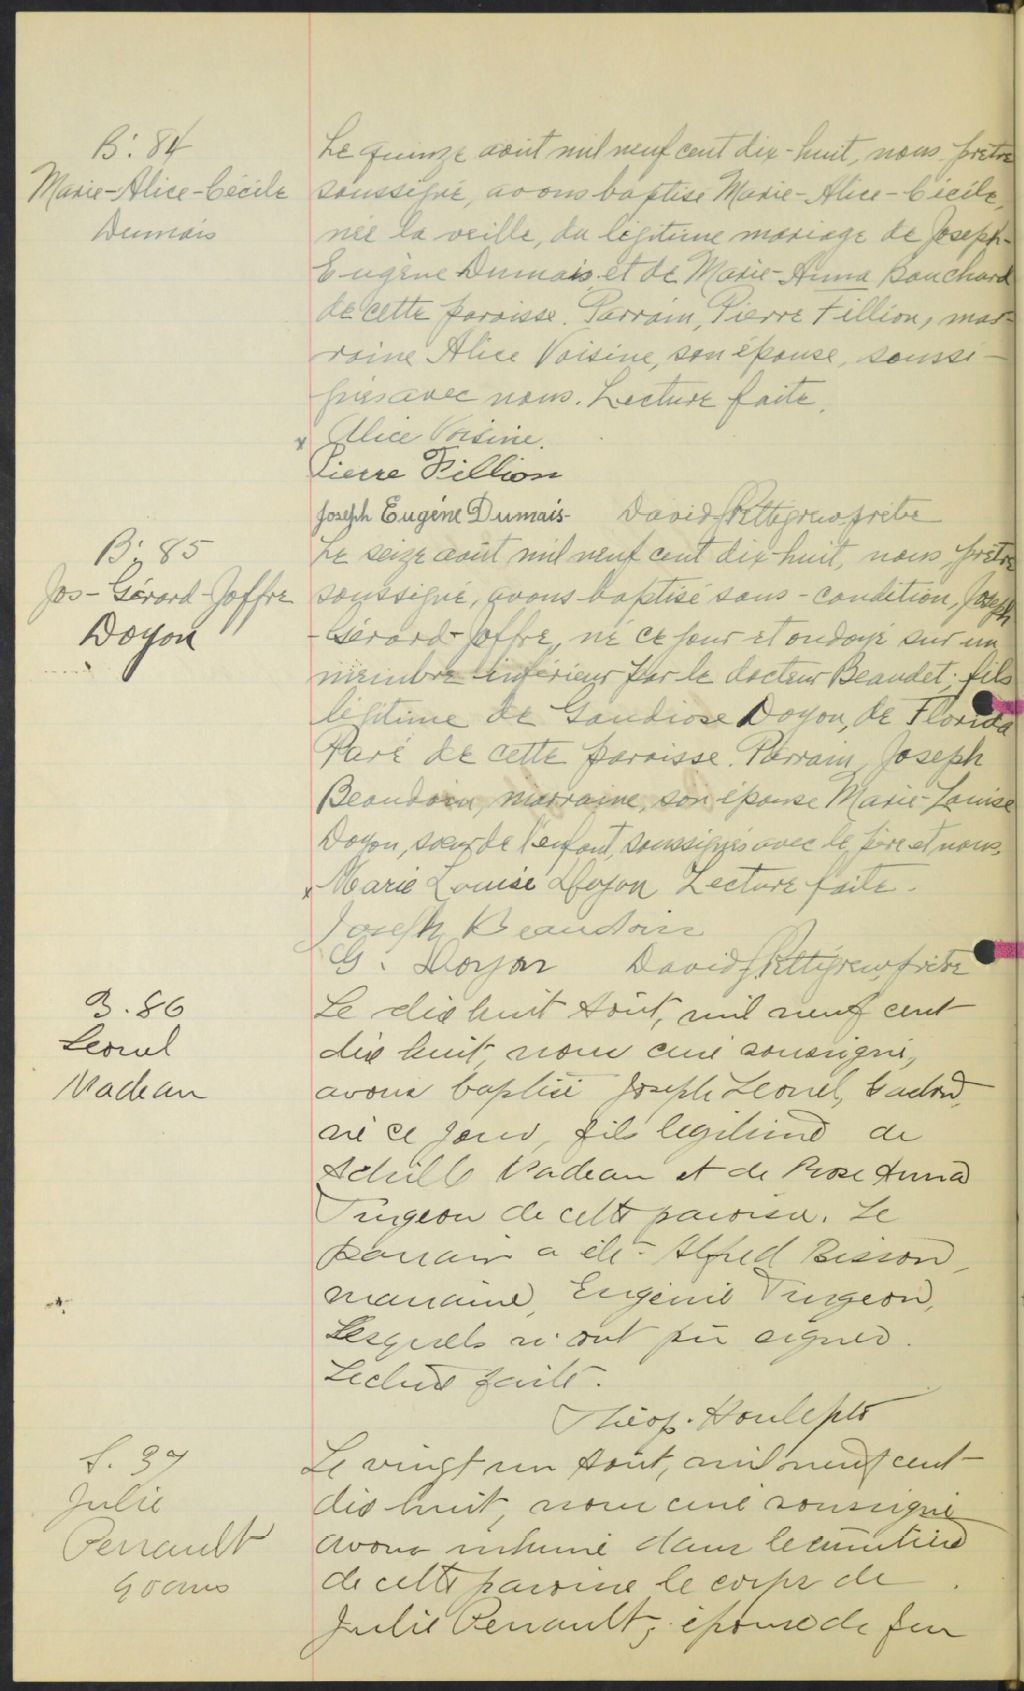 B. 84
Marie-Alice-Cécile
Dumais
Le quinze août mil neuf cent dix-huit, nous prêtre
soussigné, avons baptisé Marie-Alice-Cécile,
née la veille, du légitime mariage de Joseph-
Eugène Dumais et de Marie-Anna Bouchard
de cette paroisse. Parrain, Pierre Fillion, mar-
raine Alice Voisine, son épouse, soussi-
gnés avec nous. Lecture faite.
x Alice Voisine.
Pierre Fillion
Joseph Eugène Dumais - David Pettigrew prêtre
B. 85
Jos-Gérard-Joffre
Doyon
Le seize août mil neuf cent dix-huit, nous prêtre
soussigné, avons baptisé sous-condition, Joseph
-Gérard-Joffre, né ce jour et ondoyé sur un
membre inférieur par le docteur Beaudet, fils
légitime de Gaudiose Doyon, de Florida
Paré de cette paroisse. Parrain, Joseph
Beaudoin, marraine, son épouse Marie-Louise
Doyon, sœur de l'enfant, soussignés avec le père et nous.
x Marie Louise Doyon Lecture faite.
Joseph Beaudoin
G. Doyon David Pettigrew, prêtre
B. 86
Leonel
Nadeau
Le dix huit Août, mil neuf cent
dix huit, nous curé soussigné,
avons baptisé Joseph Leonel,
né ce jour, fils legitime de
Achille Nadeau et de Rose Anna
Turgeon de cette paroisse. Le
parrain a été Alfred Bisson,
marraine, Eugénie Turgeon,
Lesquels n'ont pu signer.
Lecture faite.
Théop. Houle ptre
S. 37
Julie
Perrault
90 ans
Le vingt un Août, mil neuf cent
dix huit, nous curé soussigné
avons inhumé dans le cimetière
de cette paroisse le corps de
Julie Perrault, épouse de feu